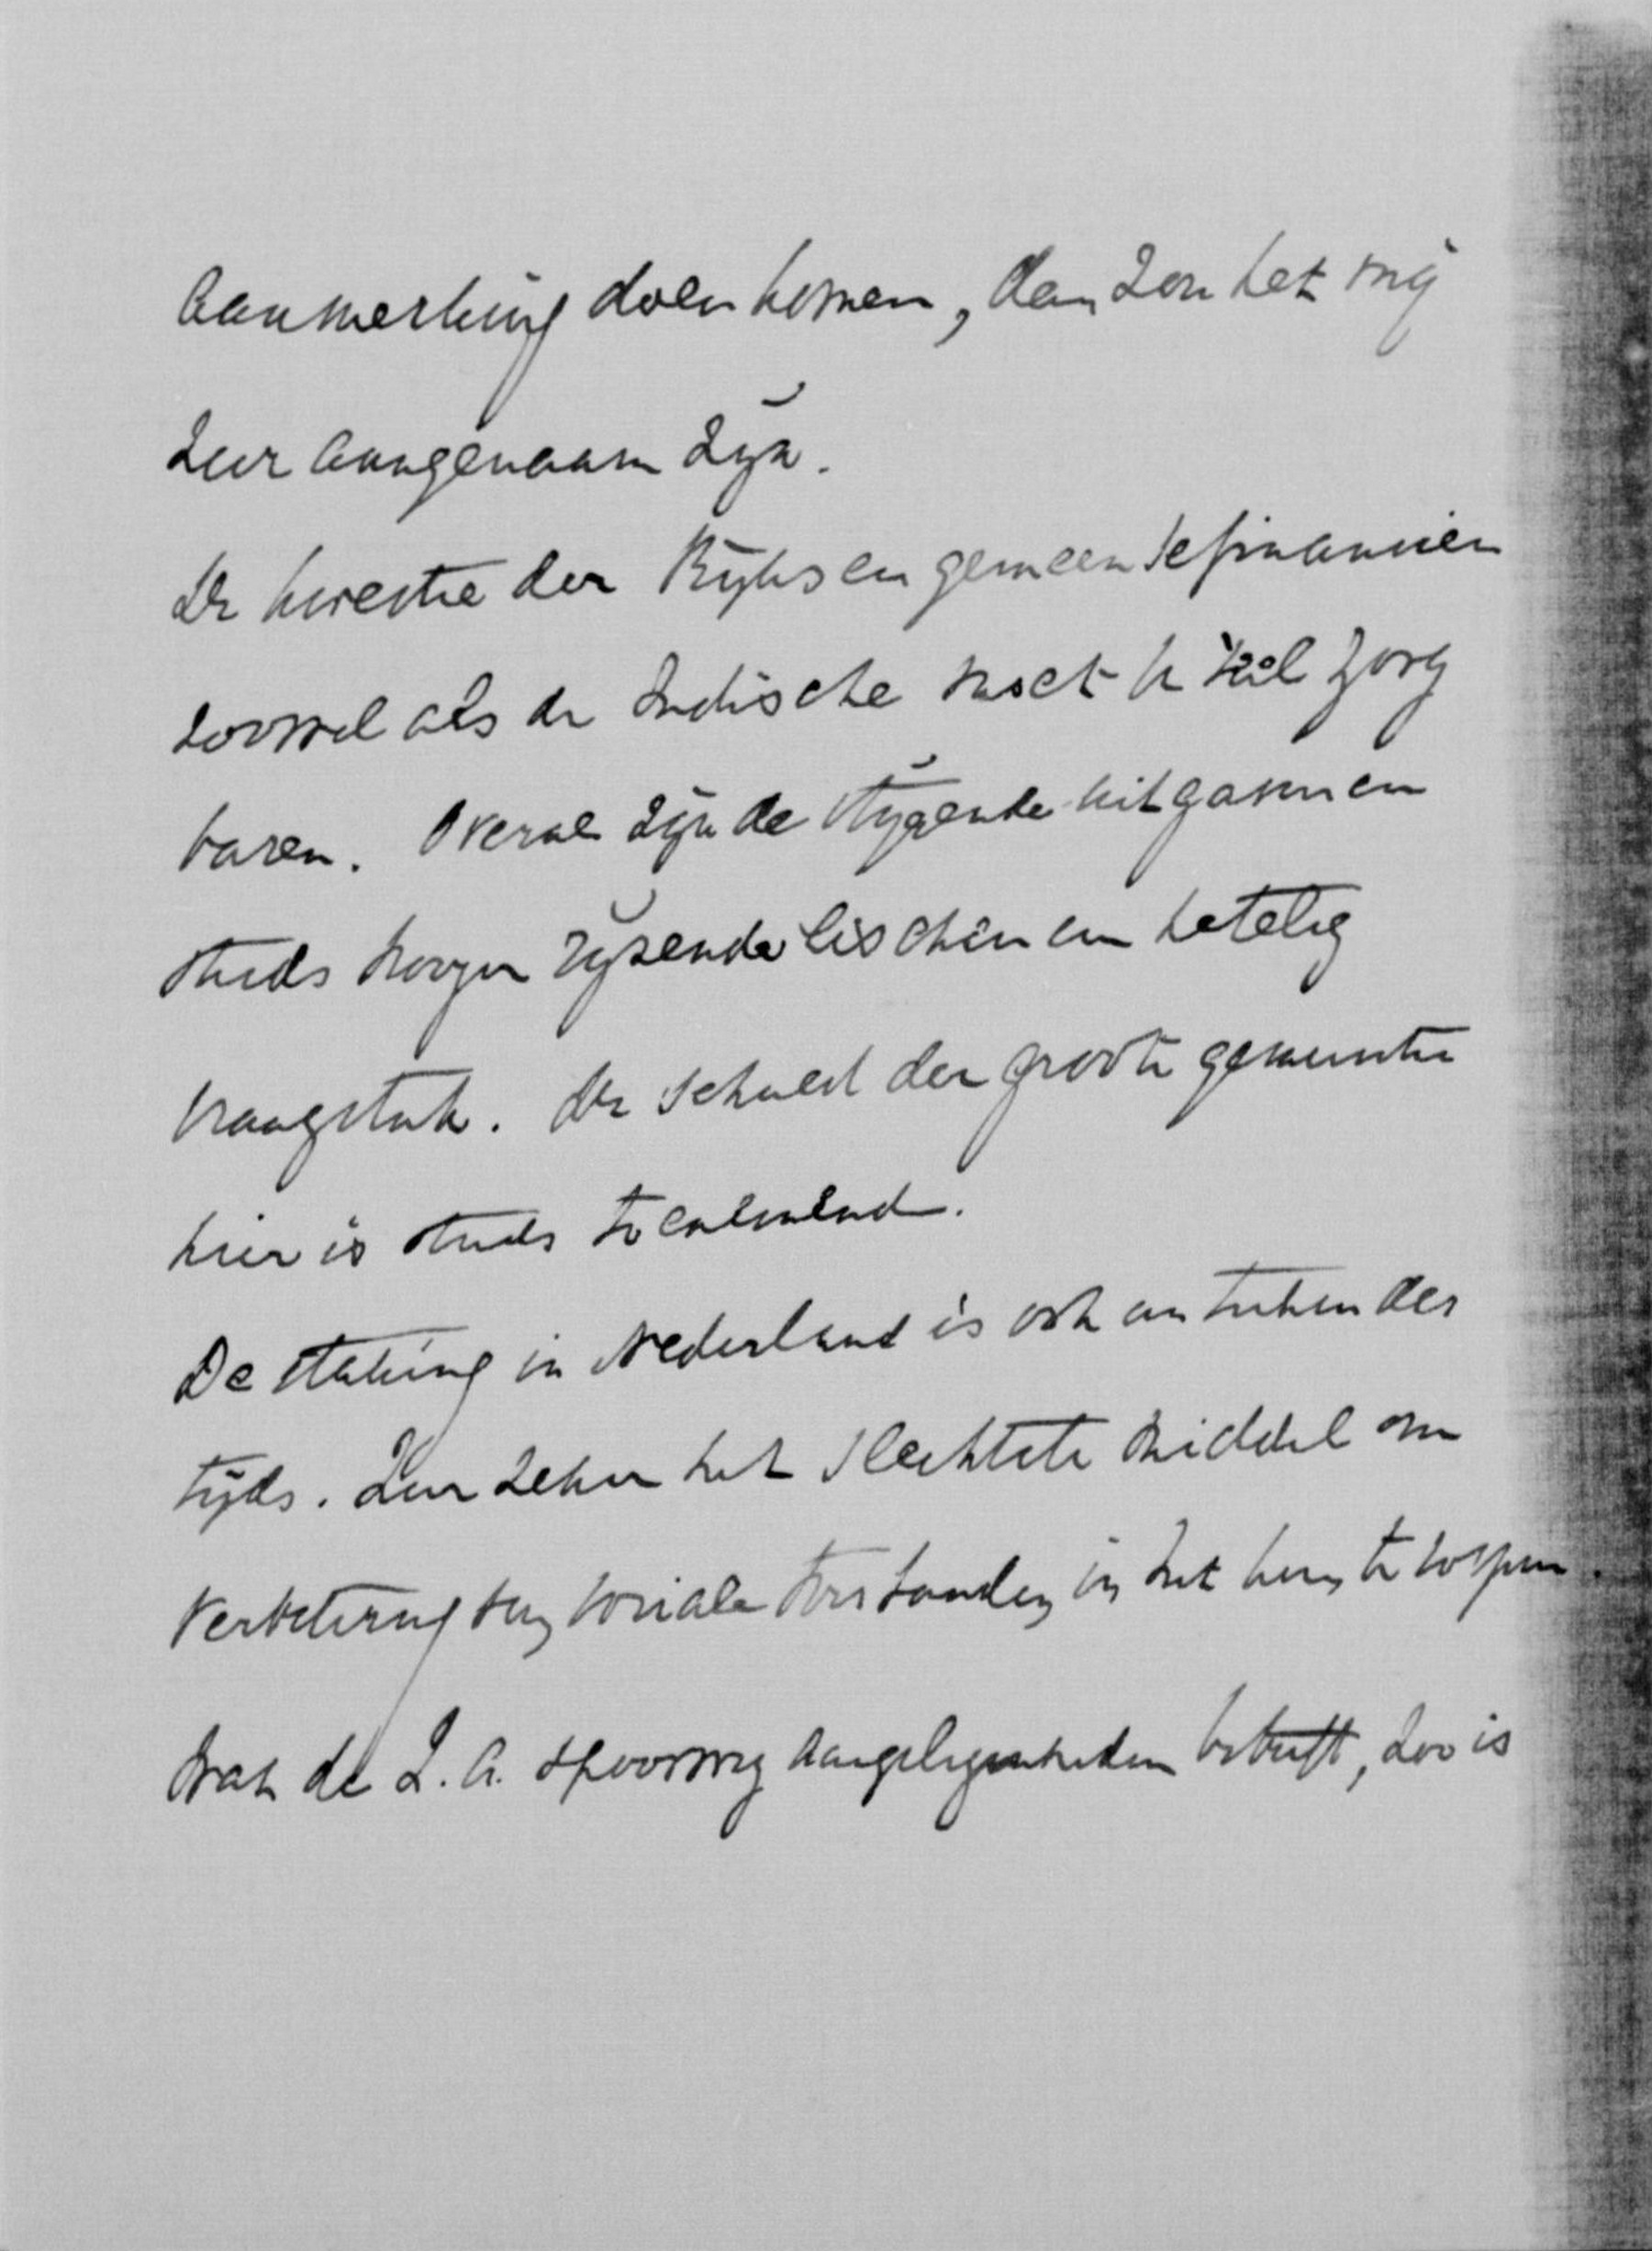 aanmerking doen komen, dan zou het mij
zeer aangenaam zijn.
De kwestie der Rijks en gemeentefinanciën
zoowel als de Indische moet U veel zorg
baren. Overal zijn de stijgende uitgaven en
steeds hooger rijzende eischen een netelig
vraagstuk. De schuld der groote gemeenten
hier is steeds toenemend.
De staking in Nederland is ook een teeken des
tijds. Zeer zeker het slechtste middel om
verbetering van sociale toestanden in het leven te roepen.
Wat de Z.A. spoorweg aangelegenheden betreft, zoo is